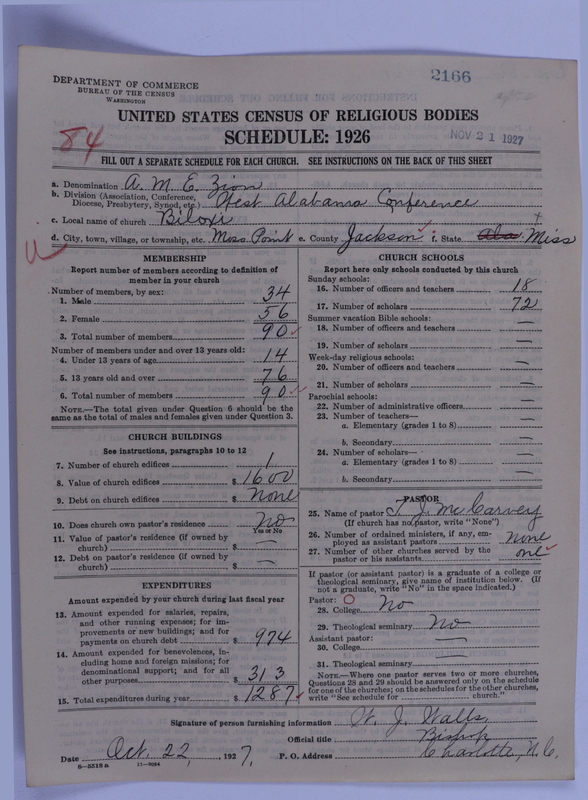 2166
DEPARTMENT OF COMMERCE
BUREAU OF THE CENSUS
WASHINGTON
UNITED STATES CENSUS OF RELIGIOUS BODIES
84
SCHEDULE: 1926
NOV 21 1927
FILL OUT A SEPARATE SCHEDULE FOR EACH CHURCH. SEE INSTRUCTIONS ON THE BACK OF THIS SHEET
a. Denomination A. M. E. Zion
b. Division (Association, Conference,
Diocese, Presbytery, Synod, etc.) West Alabama Conference
c. Local name of church Biloxi
d. City, town, village, or township, etc. Moss Point e. County Jackson f. State Ala Miss
MEMBERSHIP
Report number of members according to definition of
member in your church
Number of members, by sex:
1. Male 34
2. Female 56
3. Total number of members 90
Number of members under and over 13 years old:
4. Under 13 years of age 14
5. 13 years old and over 76
6. Total number of members 90
NOTE.—The total given under Question 6 should be
same as the total of males and females given under Question 3.
CHURCH BUILDINGS
See instructions, paragraphs 10 to 12
7. Number of church edifices 1
8. Value of church edifices $ 1600
9. Debt on church edifices $ none
10. Does church own pastor's residence no
Yes or No
11. Value of pastor's residence (if owned by
church) $ —
12. Debt on pastor's residence (if owned by
church) $ —
EXPENDITURES
Amount expended by your church during last fiscal year
13. Amount expended for salaries, repairs,
and other running expenses; for im-
provements or new buildings; and for
payments on church debt $ 974
14. Amount expended for benevolences, in-
cluding home and foreign missions; for
denominational support; and for all
other purposes $ 313
15. Total expenditures during year $ 1287
CHURCH SCHOOLS
Report here only schools conducted by this church
Sunday schools:
16. Number of officers and teachers 18
17. Number of scholars 72
Summer vacation Bible schools:
18. Number of officers and teachers —
19. Number of scholars —
Week-day religious schools:
20. Number of officers and teachers —
21. Number of scholars —
Parochial schools:
22. Number of administrative officers —
23. Number of teachers—
a. Elementary (grades 1 to 8) —
b. Secondary —
24. Number of scholars—
a. Elementary (grades 1 to 8) —
b. Secondary —
PASTOR
25. Name of pastor T. J. McCarvey
(If church has no pastor, write "None")
26. Number of ordained ministers, if any, em-
ployed as assistant pastors none
27. Number of other churches served by the
pastor or his assistants one
If pastor (or assistant pastor) is a graduate of a college or
theological seminary, give name of institution below. (If
not a graduate, write "No" in the space indicated.)
Pastor:
28. College No
29. Theological seminary No
Assistant pastor:
30. College —
31. Theological seminary —
NOTE.—Where one pastor serves two or more churches,
Questions 28 and 29 should be answered only on the schedule
for one of the churches; on the schedules for the other churches,
write "See schedule for church."
Signature of person furnishing information W. J. Walls
Official title Bishop
Date Oct. 22, 1927, P. O. Address Charlotte, N. C.
8-5518a 11-9024